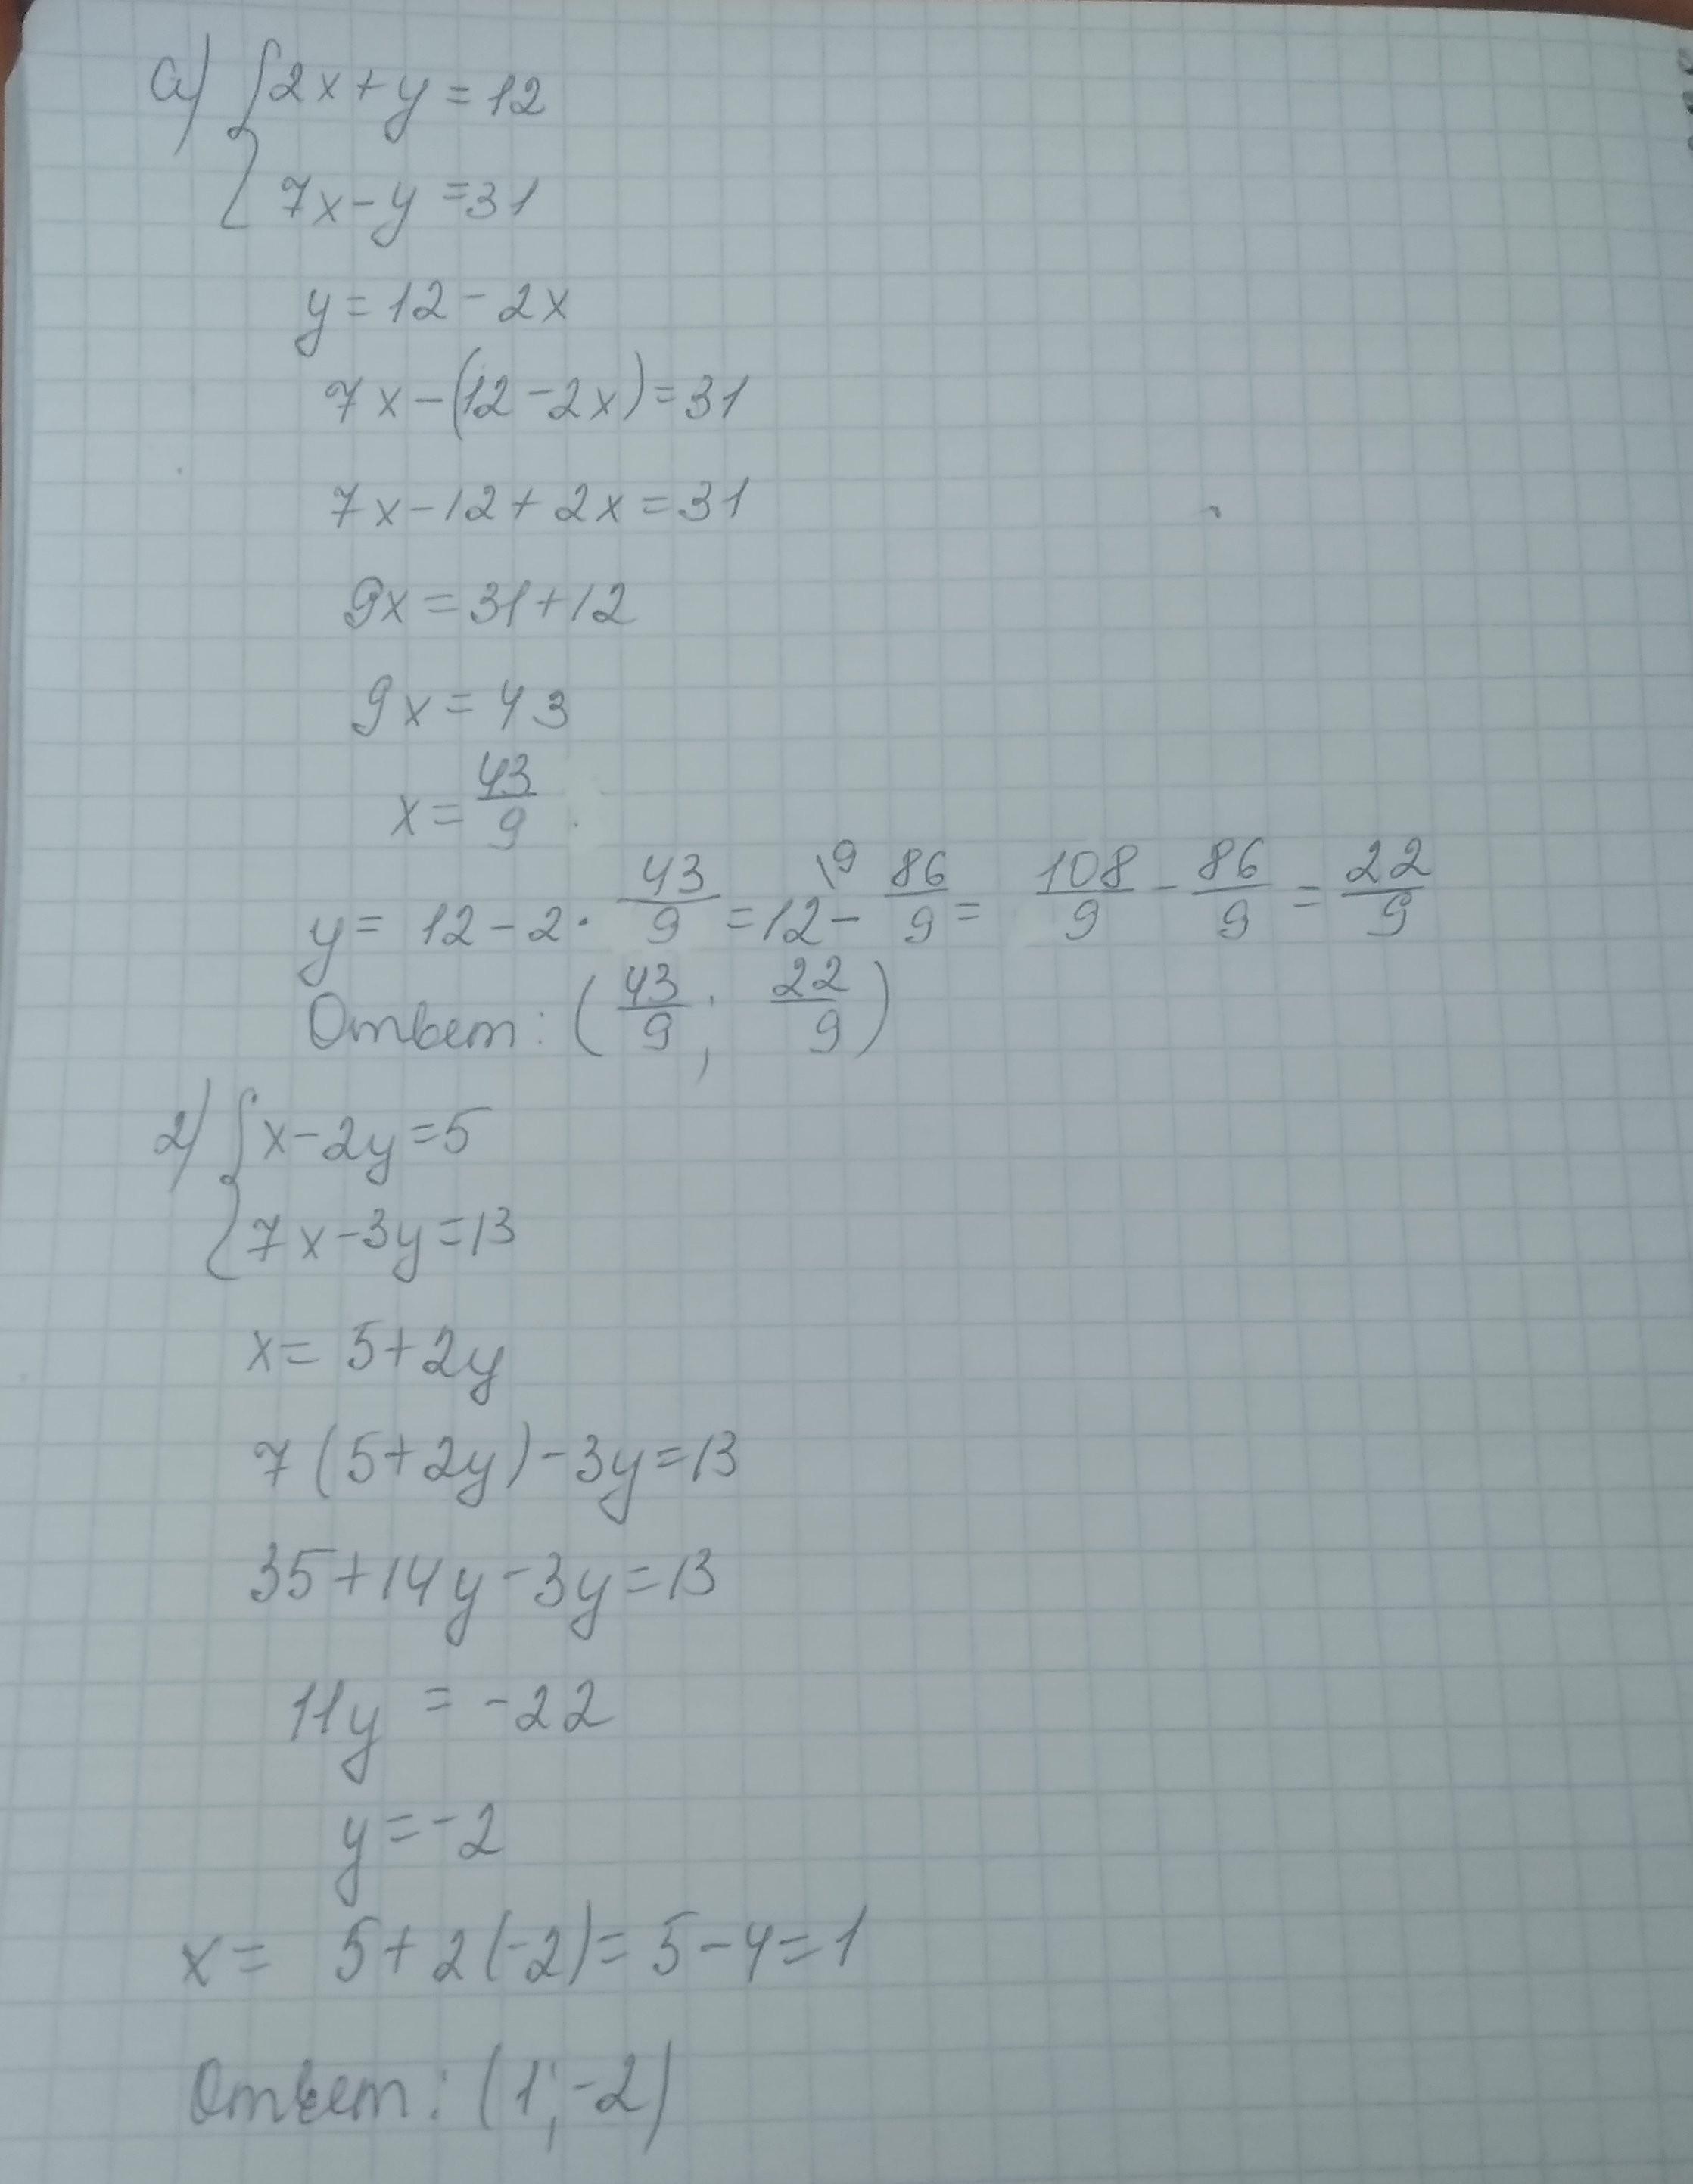 а) { 2x+y=12
7x-y=31
y=12-2x
7x-(12-2x)=31
7x-12+2x=31
9x=31+12
9x=43
x=43/9
y=12-2·43/9=12\9-86/9=108/9-86/9=22/9
Ответ: (43/9; 22/9)
2) { x-2y=5
7x-3y=13
x=5+2y
7(5+2y)-3y=13
35+14y-3y=13
11y=-22
y=-2
x=5+2(-2)=5-4=1
Ответ: (1;-2)